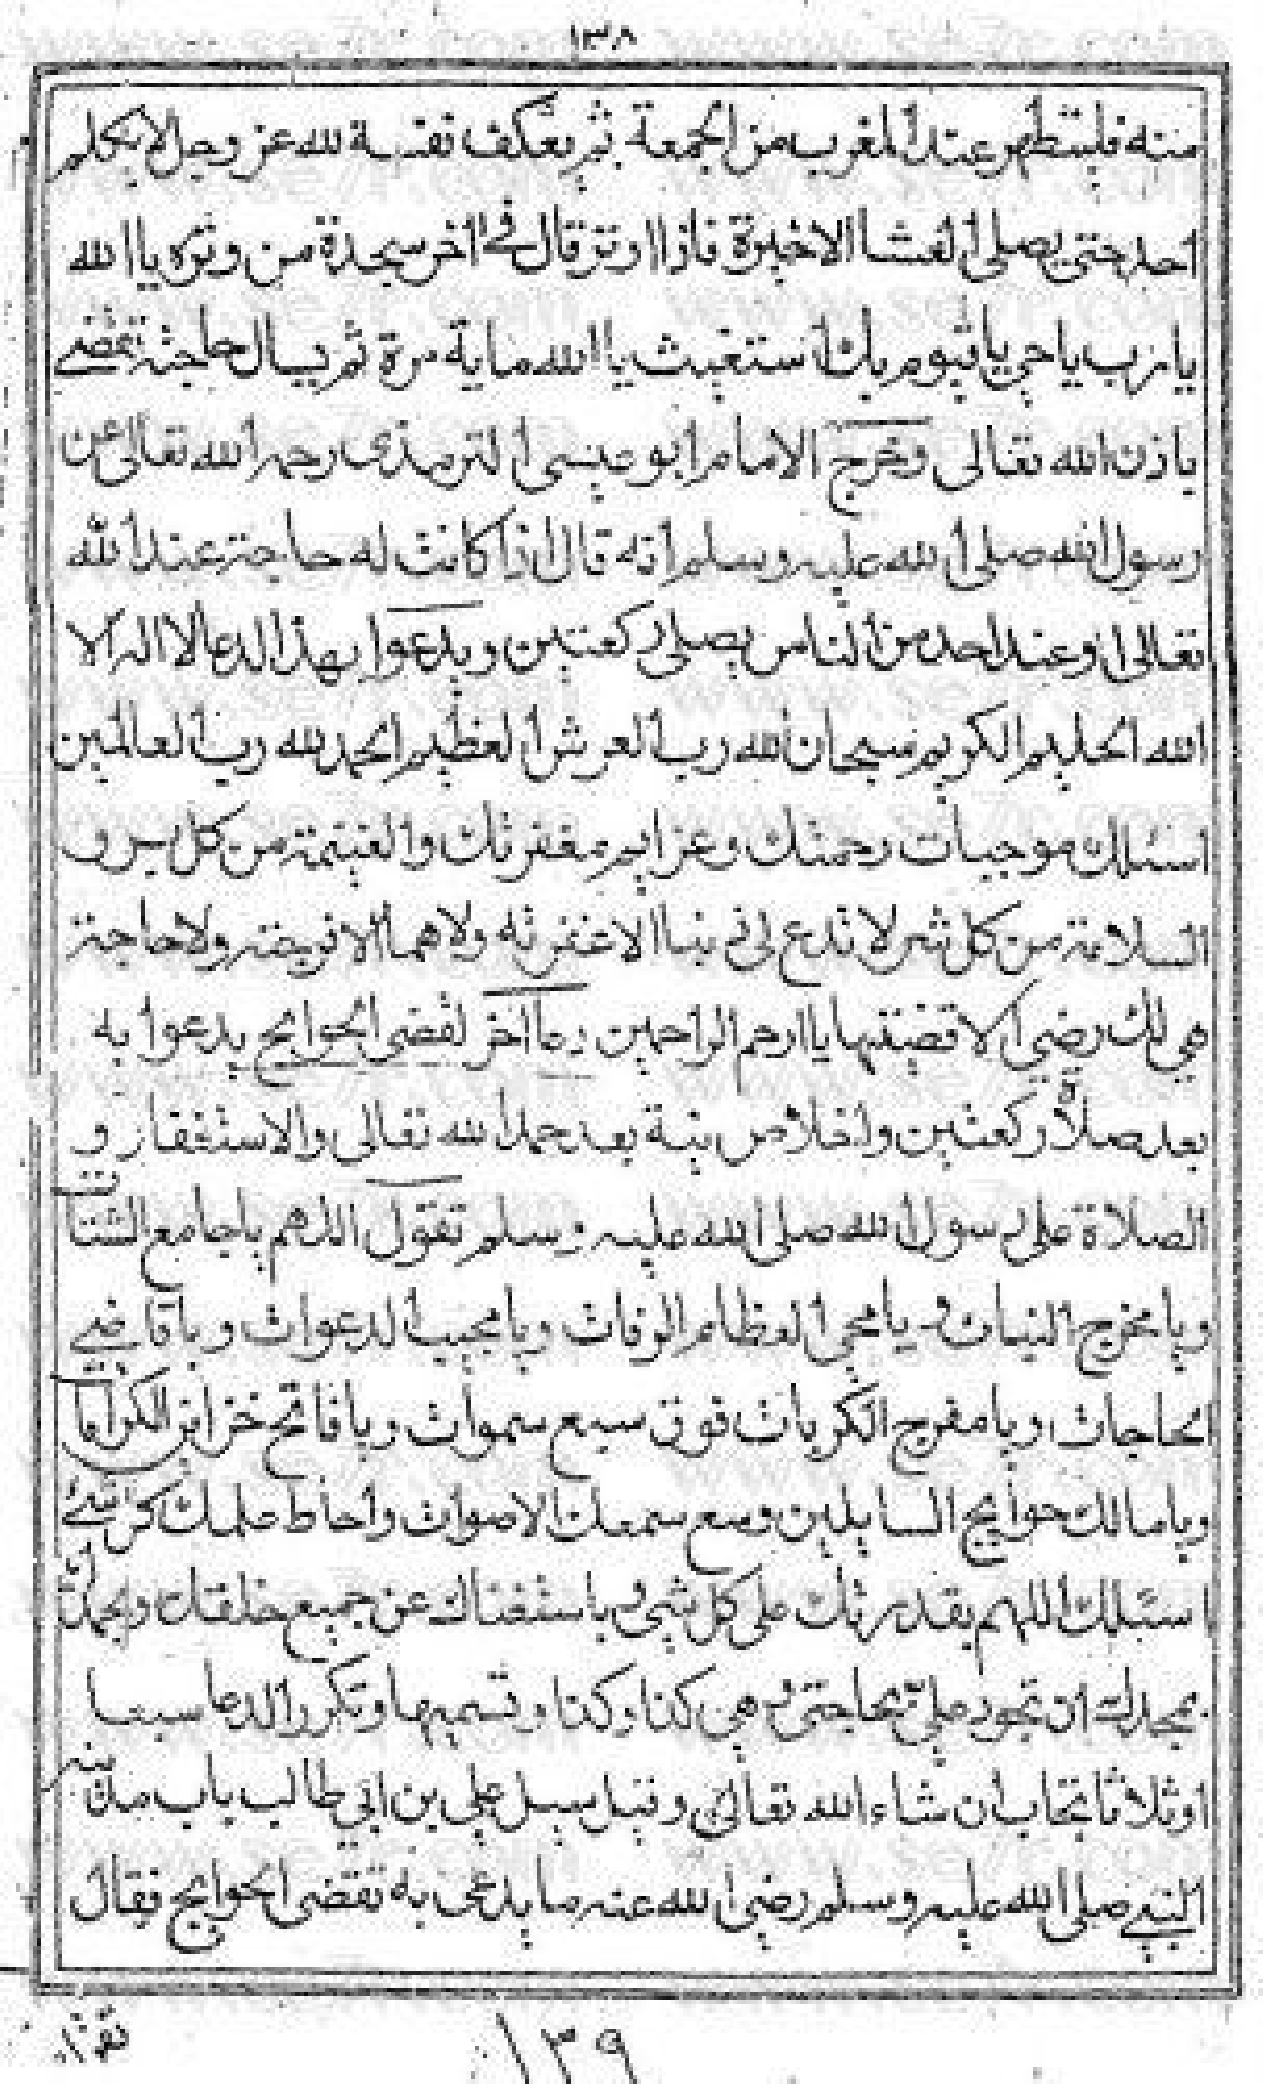 ١٣٨
منه فليتطهر عند المغرب من الجمعة ثم يعكف نفسه لله عز وجل لا يكلم
أحد حتى يصلي العشا الاخيرة فاذا اوتر قال في اخر سجدة من وتره يا الله
يا رب يا حي يا قيوم بك أستغيث يا الله ماية مرة ثم يسال حاجته تقضى
باذن الله تعالى وخرج الامام أبو عيسى الترمذى رحمه الله تعالى عن
رسول الله صلى الله عليه وسلم أنه قال اذا كانت له حاجة عند الله
تعالى او عند احد من الناس يصلي ركعتين ويدعوا بهذا الدعا لا اله الا
الله الحليم الكريم سبحان الله رب العرش العظيم الحمد لله رب العالمين
اسئلك موجبات رحمتك وعزايم مغفرتك والغنيمة من كل بر و
السلامة من كل شر لا تدع لى ذنبا الا غفرته ولا هما الا فرجته ولا حاجة
هي لك رضي الا قضيتها يا ارحم الراحمين دعا اخر لقضى الحوايج يدعوا به
بعد صلاة ركعتين واخلاص نية بعد حمد الله تعالى والاستغفار و
الصلاة على رسول الله صلى الله عليه وسلم تقول اللهم يا جامع الشتات
ويا مخرج النبات ويا محي العظام الرفات ويا مجيب الدعوات ويا قاضي
الحاجات ويا مفرج الكربات فوق سبع سموات ويا فاتح خزاين الكرامات
ويا مالك حوايج السايلين وسع سمعك الاصوات واحاط علمك كل شئ
اسئلك اللهم بقدرتك على كل شئ وباستغناك عن جميع خلقك وبحمدك
بمجدك ان تجود علي بحاجتي وهي كذا وكذا وتسميها وتكرر الدعا سبعا
او ثلاثا تجاب ان شاء الله تعالى وقيل سيل علي بن ابي طالب باب مدينة
النبي صلى الله عليه وسلم رضي الله عنه ما يدعى به تقضى الحوايج فقال
١٣٩